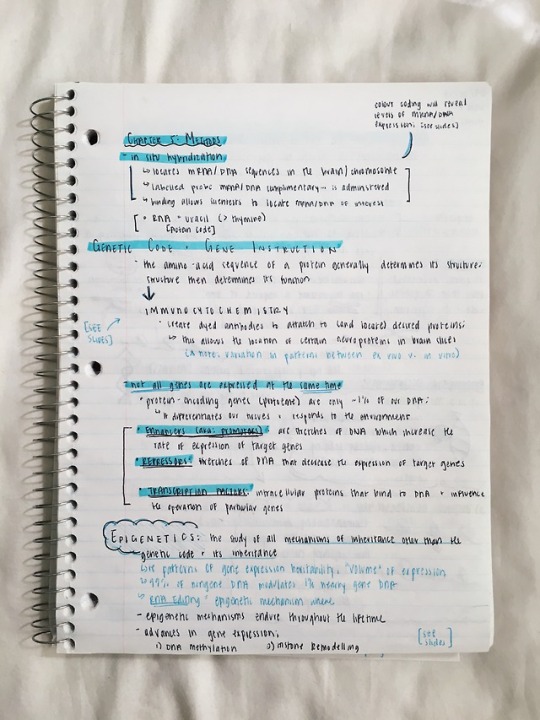 colour coding will reveal
levels of mRNA/DNA
expression. [see slides]
CHAPTER 5: METHODS
· in situ hybridization
↳ locates mRNA/DNA sequences in the brain/chromosome
↳ labelled probe mRNA/DNA complimentary is administered
↳ binding allows scientists to locate mRNA/DNA of interest
RNA = uracil (> thymine)
GENETIC CODE = GENE INSTRUCTION
· the amino-acid sequence of a protein generally determines its structure:
structure then determines its function
IMMUNOCYTOCHEMISTRY
[SEE
SLIDES]
· create dyed antibodies to attatch to (and locate) desired proteins:
↳ this allows the location of certain neuroproteins in brain slices
(a note: variation in patterns between ex vivo v. in vivo)
· not all genes are expressed at the same time
· protein-encoding genes (proteome) are only ~1% of our DNA:
↳ it differentiates our tissues + responds to the environment
· ENHANCERS (aka: promotors) are stretches of DNA which increase the
rate of expression of target genes
· REPRESSORS: stretches of DNA that decrease the expression of target genes
· TRANSCRIPTION FACTORS: intracellular proteins that bind to DNA + influence
the operation of particular genes
EPIGENETICS: the study of all mechanisms of inheritance other than the
genetic code + its inheritance
patterns of gene expression heritability: "volume" of expression
↳ 99% of nongene DNA modulates 1% nearby gene DNA
↳ RNA Editing = epigenetic mechanism
- epigenetic mechanisms endure throughout the lifetime
- advances in gene expression:
1) DNA methylation 2) histone remodelling
[see
slides]